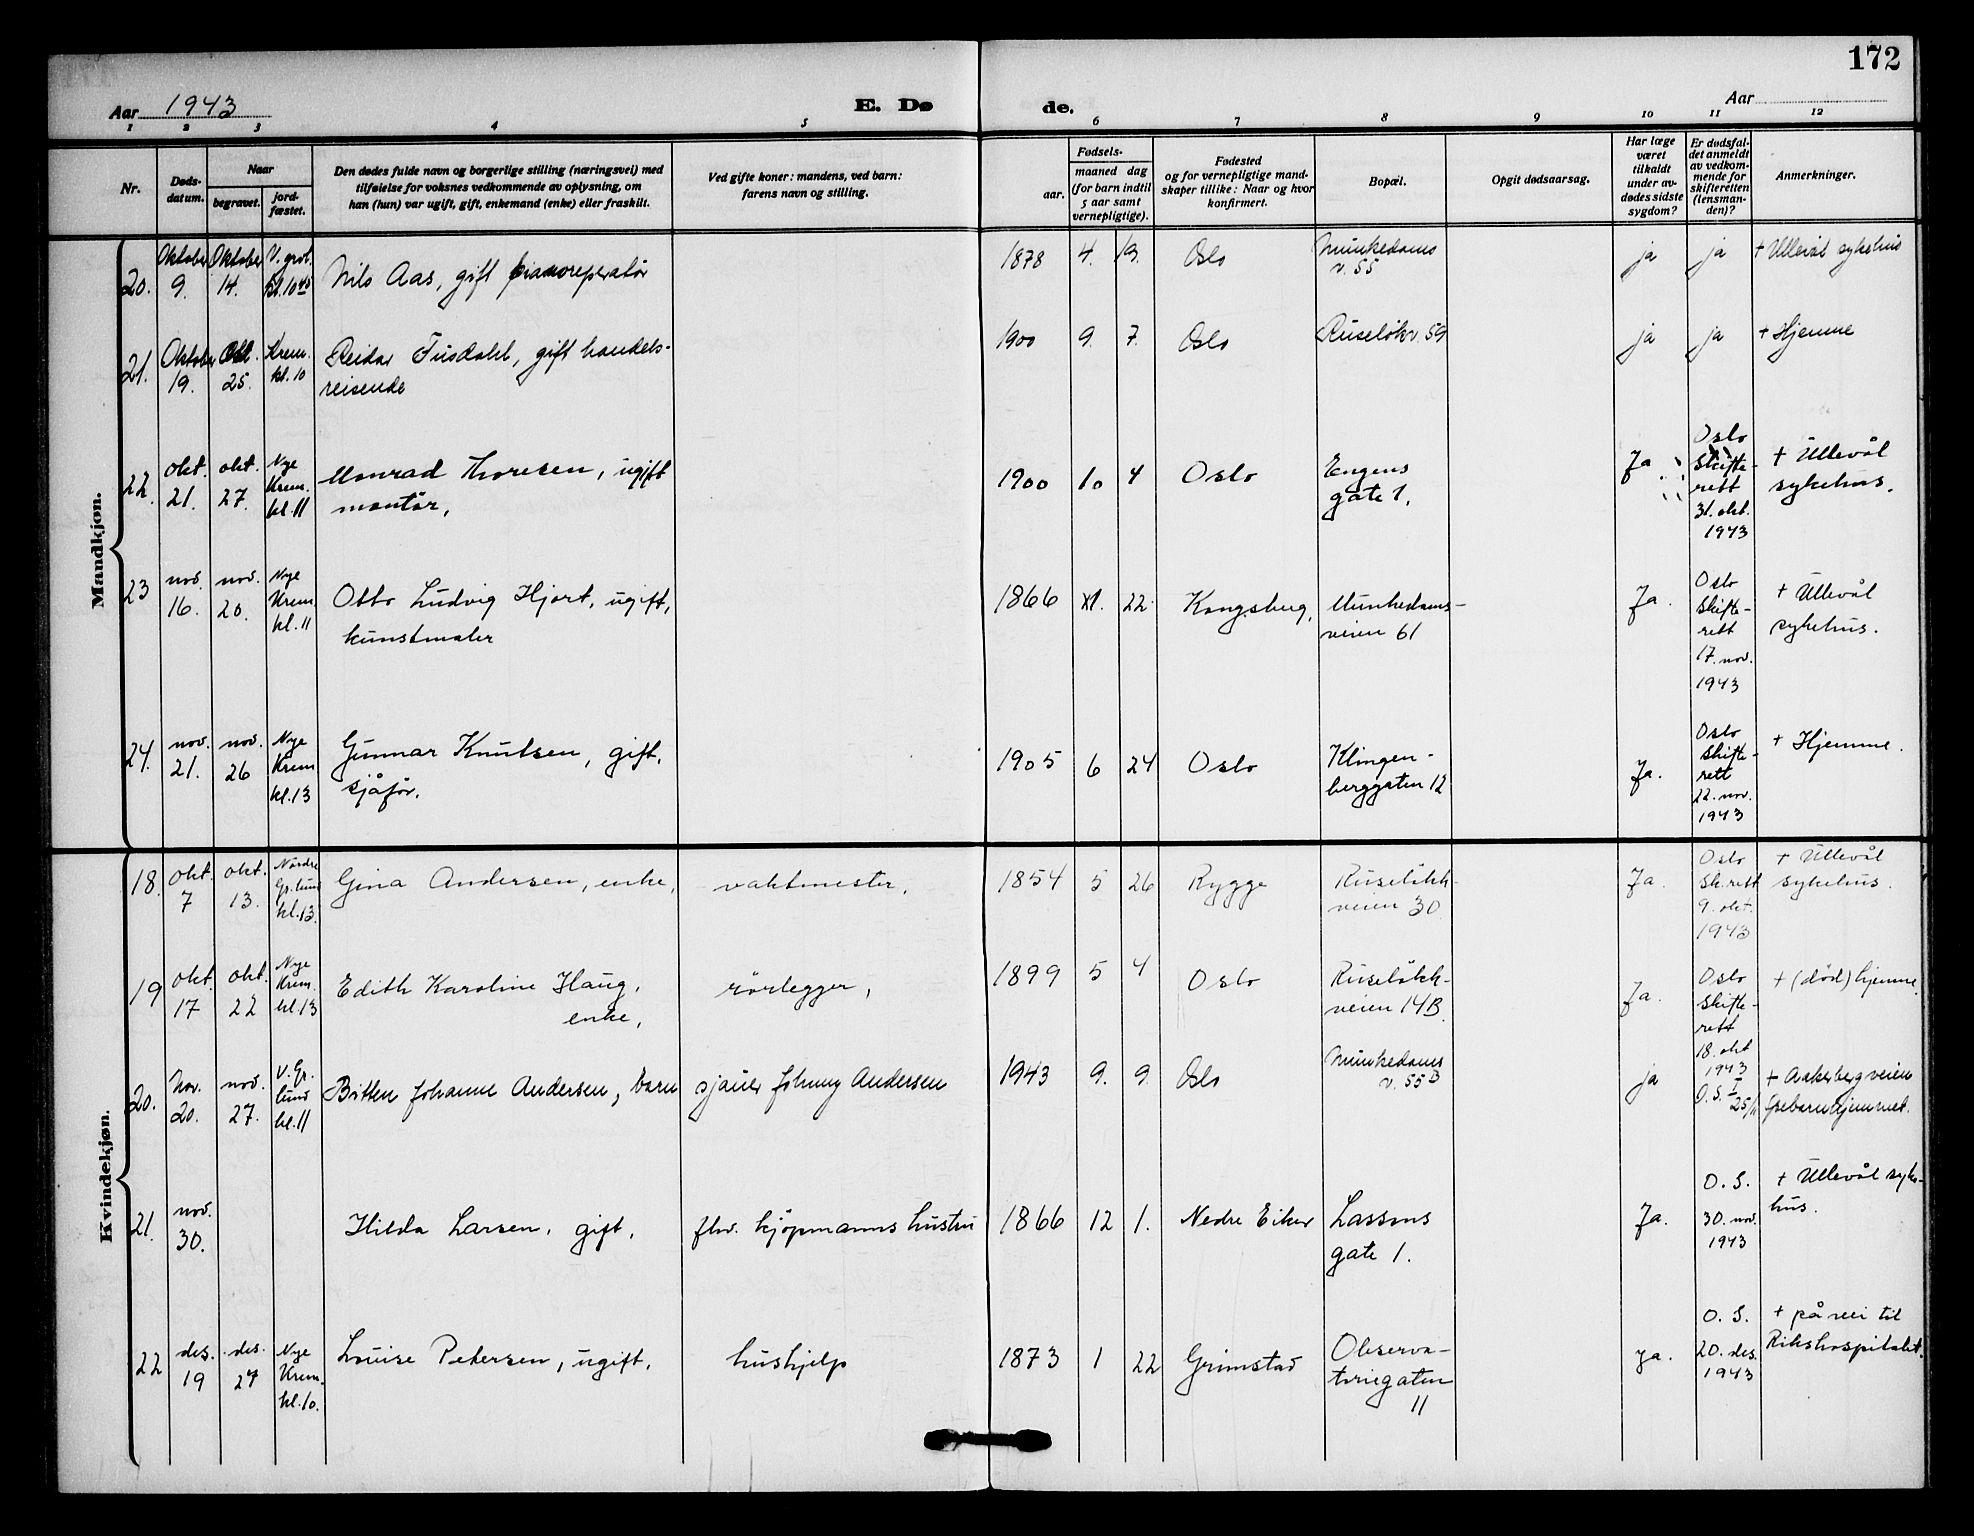 172
Aar 1943
E. Dø
de.
Aar
1 2 3 4 5 6 7 8 9 10 11 12
Nr.
Døds-
datum.
Naar
begravet.
jord-
fæstet.
Den dødes fulde navn og borgerlige stilling (næringsvei) med
tilføielse for voksnes vedkommende av oplysning, om
han (hun) var ugift, gift, enkemand (enke) eller fraskilt.
Ved gifte koner: mandens, ved barn:
farens navn og stilling.
Fødsels-
aar.
maaned dag
(for barn indtil
5 aar samt
vernepligtige).
Fødested
og for vernepligtige mand-
skaper tillike: Naar og hvor
konfirmert.
Bopæl.
Opgit dødsaarsag.
Har læge
været
tilkaldt
under av-
dødes sidste
sygdom?
Er dødsfal-
det anmeldt
av vedkom-
mende for
skifteretten
(lensman-
den)?
Anmerkninger.
Mandkjøn.
20.
Oktober
9.
Oktober
14.
V. grvl.
kl. 10 45
Nils Aas, gift pianoreperatør
1878
4.
19.
Oslo
Munkedams
v. 55
ja
ja
+ Ullevål sykehus
21.
Oktober
19.
Okt.
25.
Krem.
kl. 10
Reidar Tusdahl, gift handels-
reisende
1900
9.
7.
Oslo
Ruseløkv. 59
ja
ja
+ Hjemme
22.
okt.
21.
okt.
27.
Nye
Krem.
kl. 11
Monrad Thoresen, ugift
montør,
1900
10
4
Oslo
Engens
gate 1,
Ja.
Oslo
Skifte-
rett
31. okt.
1943
+ Ullevål
sykehus.
23
nov.
16.
nov.
20.
Nye
Krem.
kl. 11
Otto Ludvig Hjort, ugift,
kunstmaler
1866
XI.
22.
Kongsberg,
Munkedams-
veien 61
Ja.
Oslo
Skifte-
rett
17. nov.
1943
+ Ullevål
sykehus.
24.
nov.
21.
nov.
26
Nye
Krem
kl. 13
Gunnar Knutsen, gift,
sjåfør.
1905
6
24
Oslo
Klingen-
berggaten 12
Ja.
Oslo
Skifte-
rett
22. nov.
1943
+ Hjemme.
Kvindekjøn.
18.
okt.
7
okt.
13.
Nordre
Gr. lund
kl. 13.
Gina Andersen, enke,
vaktmester,
1854
5
26
Rygge
Ruseløkk-
veien 30
Ja.
Oslo
Sk. rett
9. okt.
1943
+ Ullevål
sykehus.
19
okt.
17
okt.
22
Nye
Krem.
kl. 13
Edith Karoline Haug,
enke,
rørlegger,
1899
5
4
Oslo
Ruseløkk-
veien 14B
Ja.
Oslo
Skifte-
rett
18. okt
1943
+ (død) hjemme.
20.
Nov.
20.
nov.
27.
V. Gr.
lund
kl. 11
Bitten Johanne Andersen, barn
sjauer Johnny Andersen
1943
9.
9.
Oslo
Munkedams
v. 55 B
ja
O. S. I
25/11
+ Aakerbergveien
spebarnhjemmet.
21.
nov.
30.
Hilda Larsen, gift,
fhv. kjøpmanns hustru
1866
12
1.
Nedre Eiker
Lassons
gate 1.
Ja.
O. S.
30. nov.
1943
+ Ullevål syke-
hus.
22
des.
19
des.
27
Nye
Krem.
kl. 10.
Louise Petersen, ugift,
hushjelp
1873
1
22
Grimstad
Observa-
toriegaten
11
Ja.
O. S.
20. des.
1943
+ på vei til
Rikshospitalet.